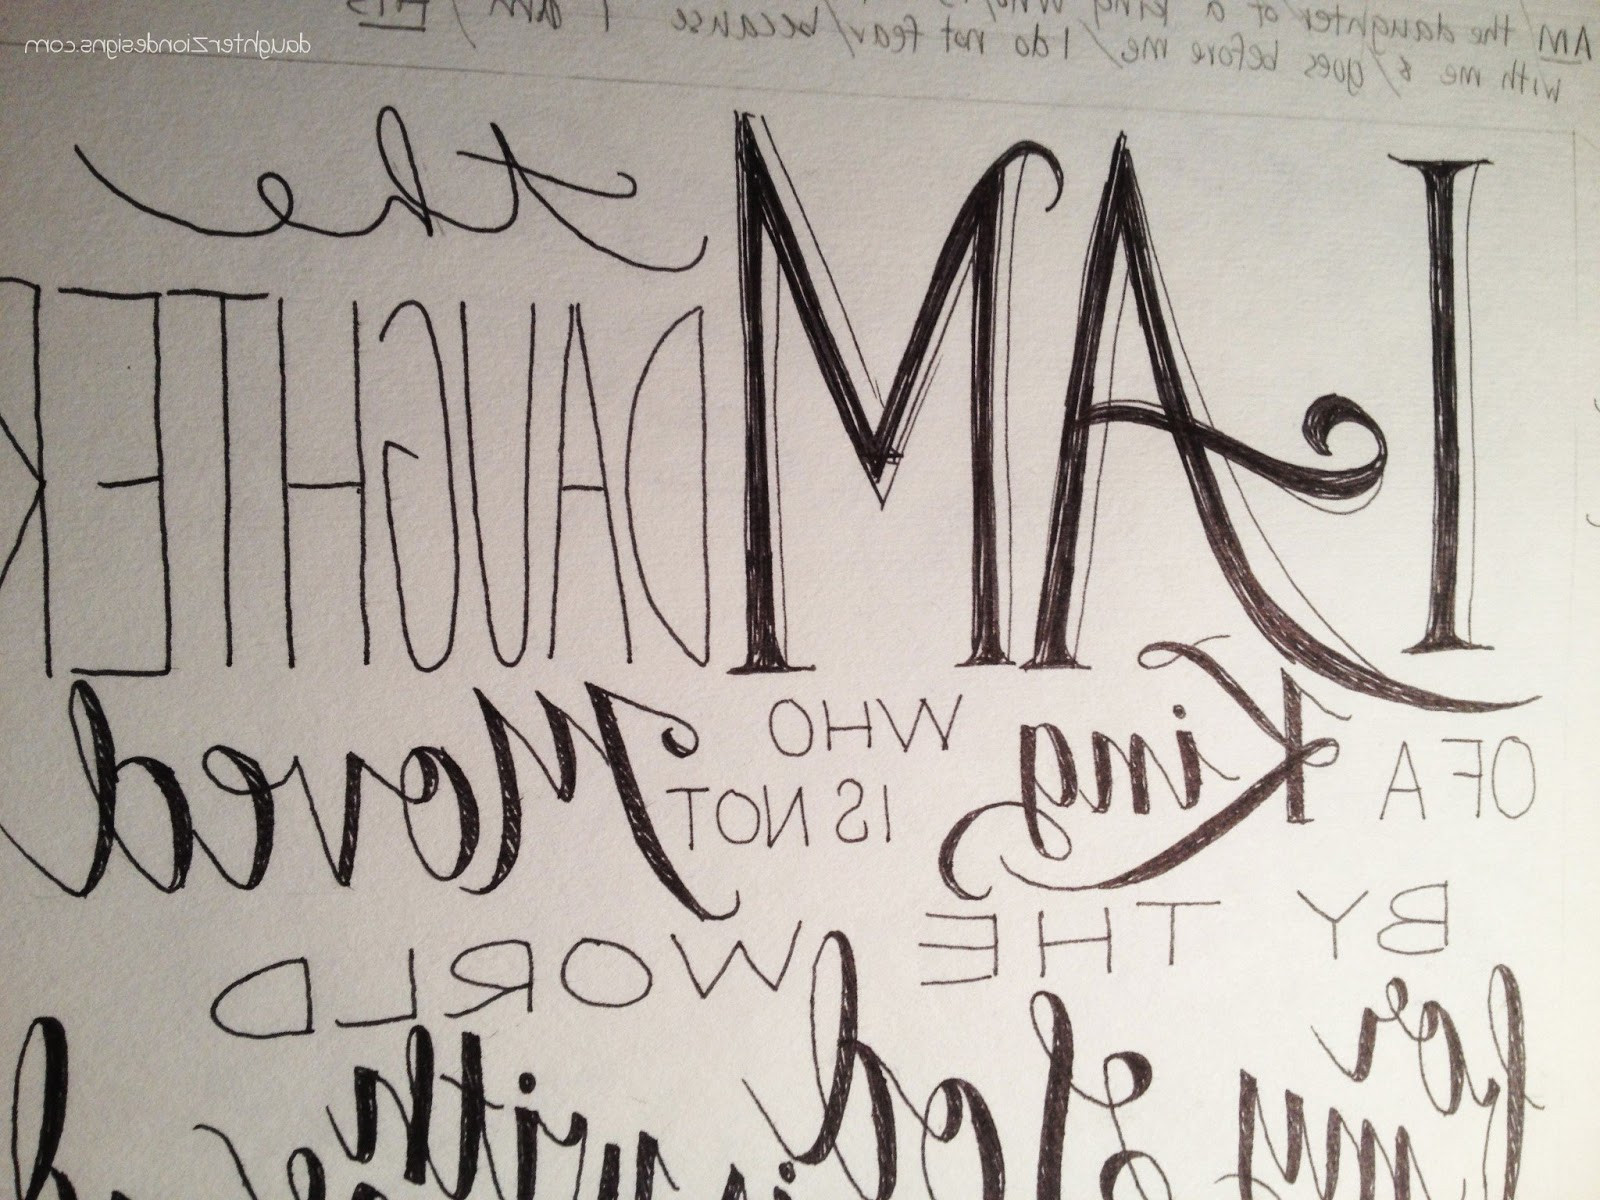 AM / the daughter / of a king who is
with me & / goes before me, / I do not fear / because I am / HIS
daughterziondesigns.com
I AM the
DAUGHTER
OF A King WHO
IS NOT Moved
BY THE WORLD
for my God is with